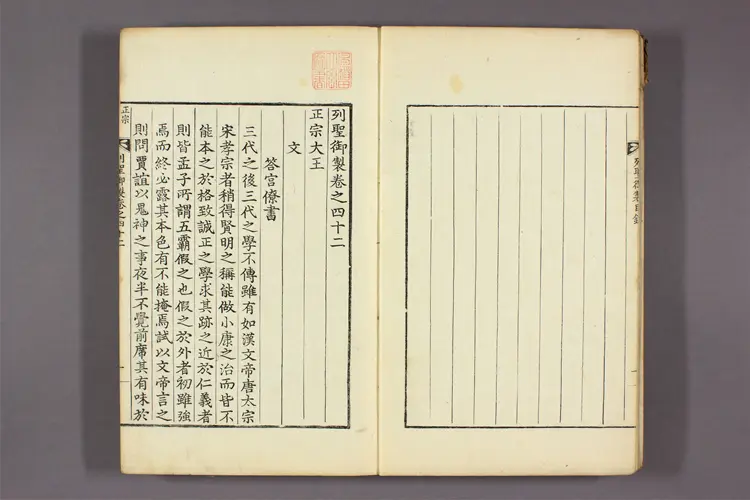 列聖御製目錄
列聖御製卷之四十二
正宗大王
文
答宮僚書
三代之後三代之學不傳雖有如漢文帝唐太宗
宋孝宗者稍得賢明之稱能做小康之治而皆不
能本之於格致誠正之學求其跡之近於仁義者
則皆孟子所謂五霸假之也假之於外者初雖強
焉而終必露其本色有不能掩焉試以文帝言之
則問賈誼以鬼神之事夜半不覺前席其有味於
正宗
列聖御製卷之四十二
一